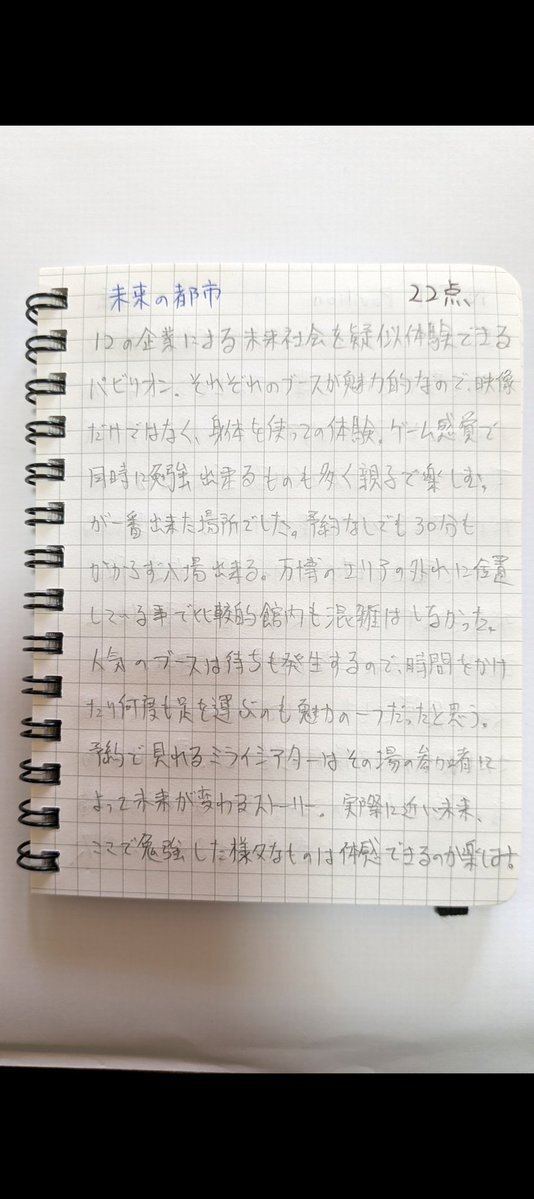 未来の都市 22点
12の企業による未来社会を疑似体験できる
パビリオン。それぞれのブースが魅力的なので、映像
だけではなく、身体を使っての体験。ゲーム感覚で
同時に勉強出来るものも多く親子で楽しむ
が一番出来た場所でした。予約なしでも30分も
かからず入場出来る。万博のエリアの外れに位置
している事で比較的館内も混雑はしなかった。
人気のブースは待ちも発生するので、時間をかけ
たり何度も足を運ぶのも魅力の一つだったと思う。
予約で見れるミライシアターはその場の参加者に
よって未来が変わるストーリー。実際に近い未来、
ここで勉強した様々なものは体感できるのか楽しみ!